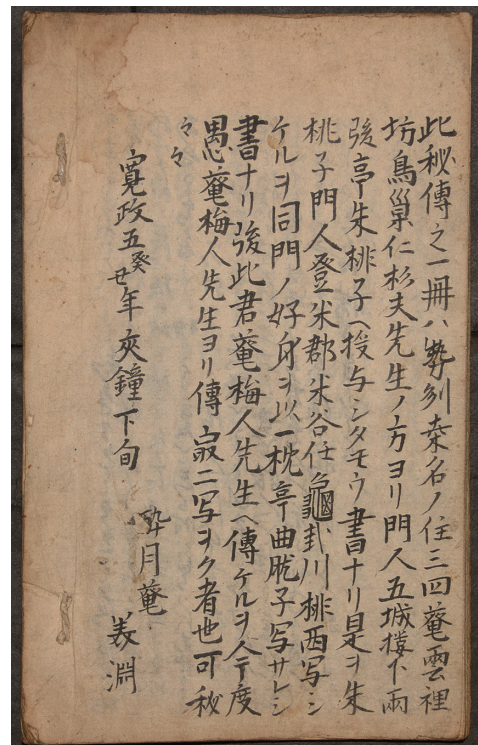 此秘傳之一冊ハ勢州桒名ノ住三四菴雲裡
坊鳥巣仁杉夫先生ノ方ヨリ門人五城樓下雨
後亭朱桃子ヘ授与シタモウ書ナリ是ヲ朱
桃子門人登米郡米谷住龜卦川桃西写シ
ケルヲ同門ノ好身ヲ以一枕亭曲肱子写サレシ
書ナリ後此君菴梅人先生ヘ傳ケルヲ今度
愚菴梅人先生ヨリ傳 ニ写ヲク者也可秘
々々
寛政五癸丑年夾鐘下旬
酔月菴
美淵